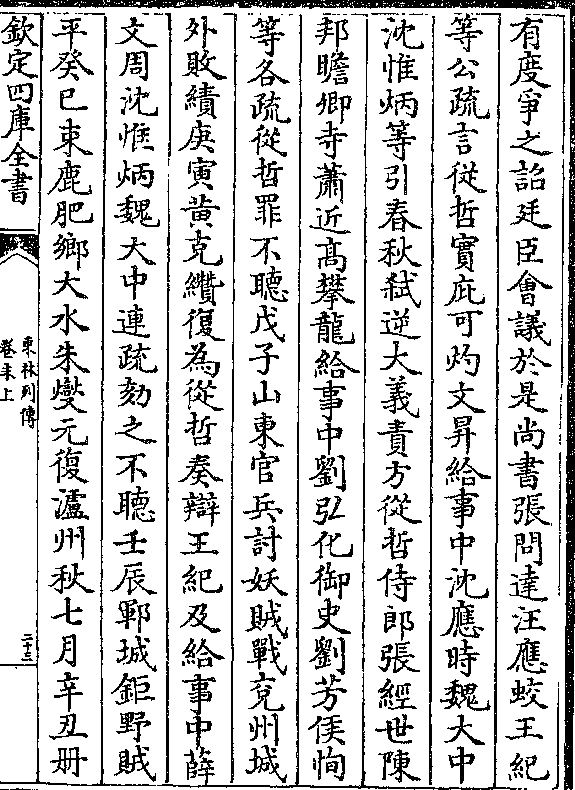 有度爭之詔廷臣會議於是尚書張問達汪應蛟王紀
等公疏言從哲實庇可灼文昇給事中沈應時魏大中
沈惟炳等引春秋弑逆大義責方從哲侍郎張經世陳
邦瞻卿寺蕭近高攀龍給事中劉弘化御史劉芳侯恂
等各疏從哲罪不聽戊子山東官兵討妖賊戰兖州城
外敗績庚寅黄克纘復為從哲奏辯王紀及給事中薛
文周沈惟炳魏大中連疏劾之不聽壬辰鄆城鉅野賊
平癸巳束鹿肥鄉大水朱燮元復瀘州秋七月辛丑册
欽定四庫全書
東林列傳
卷末上
二十三